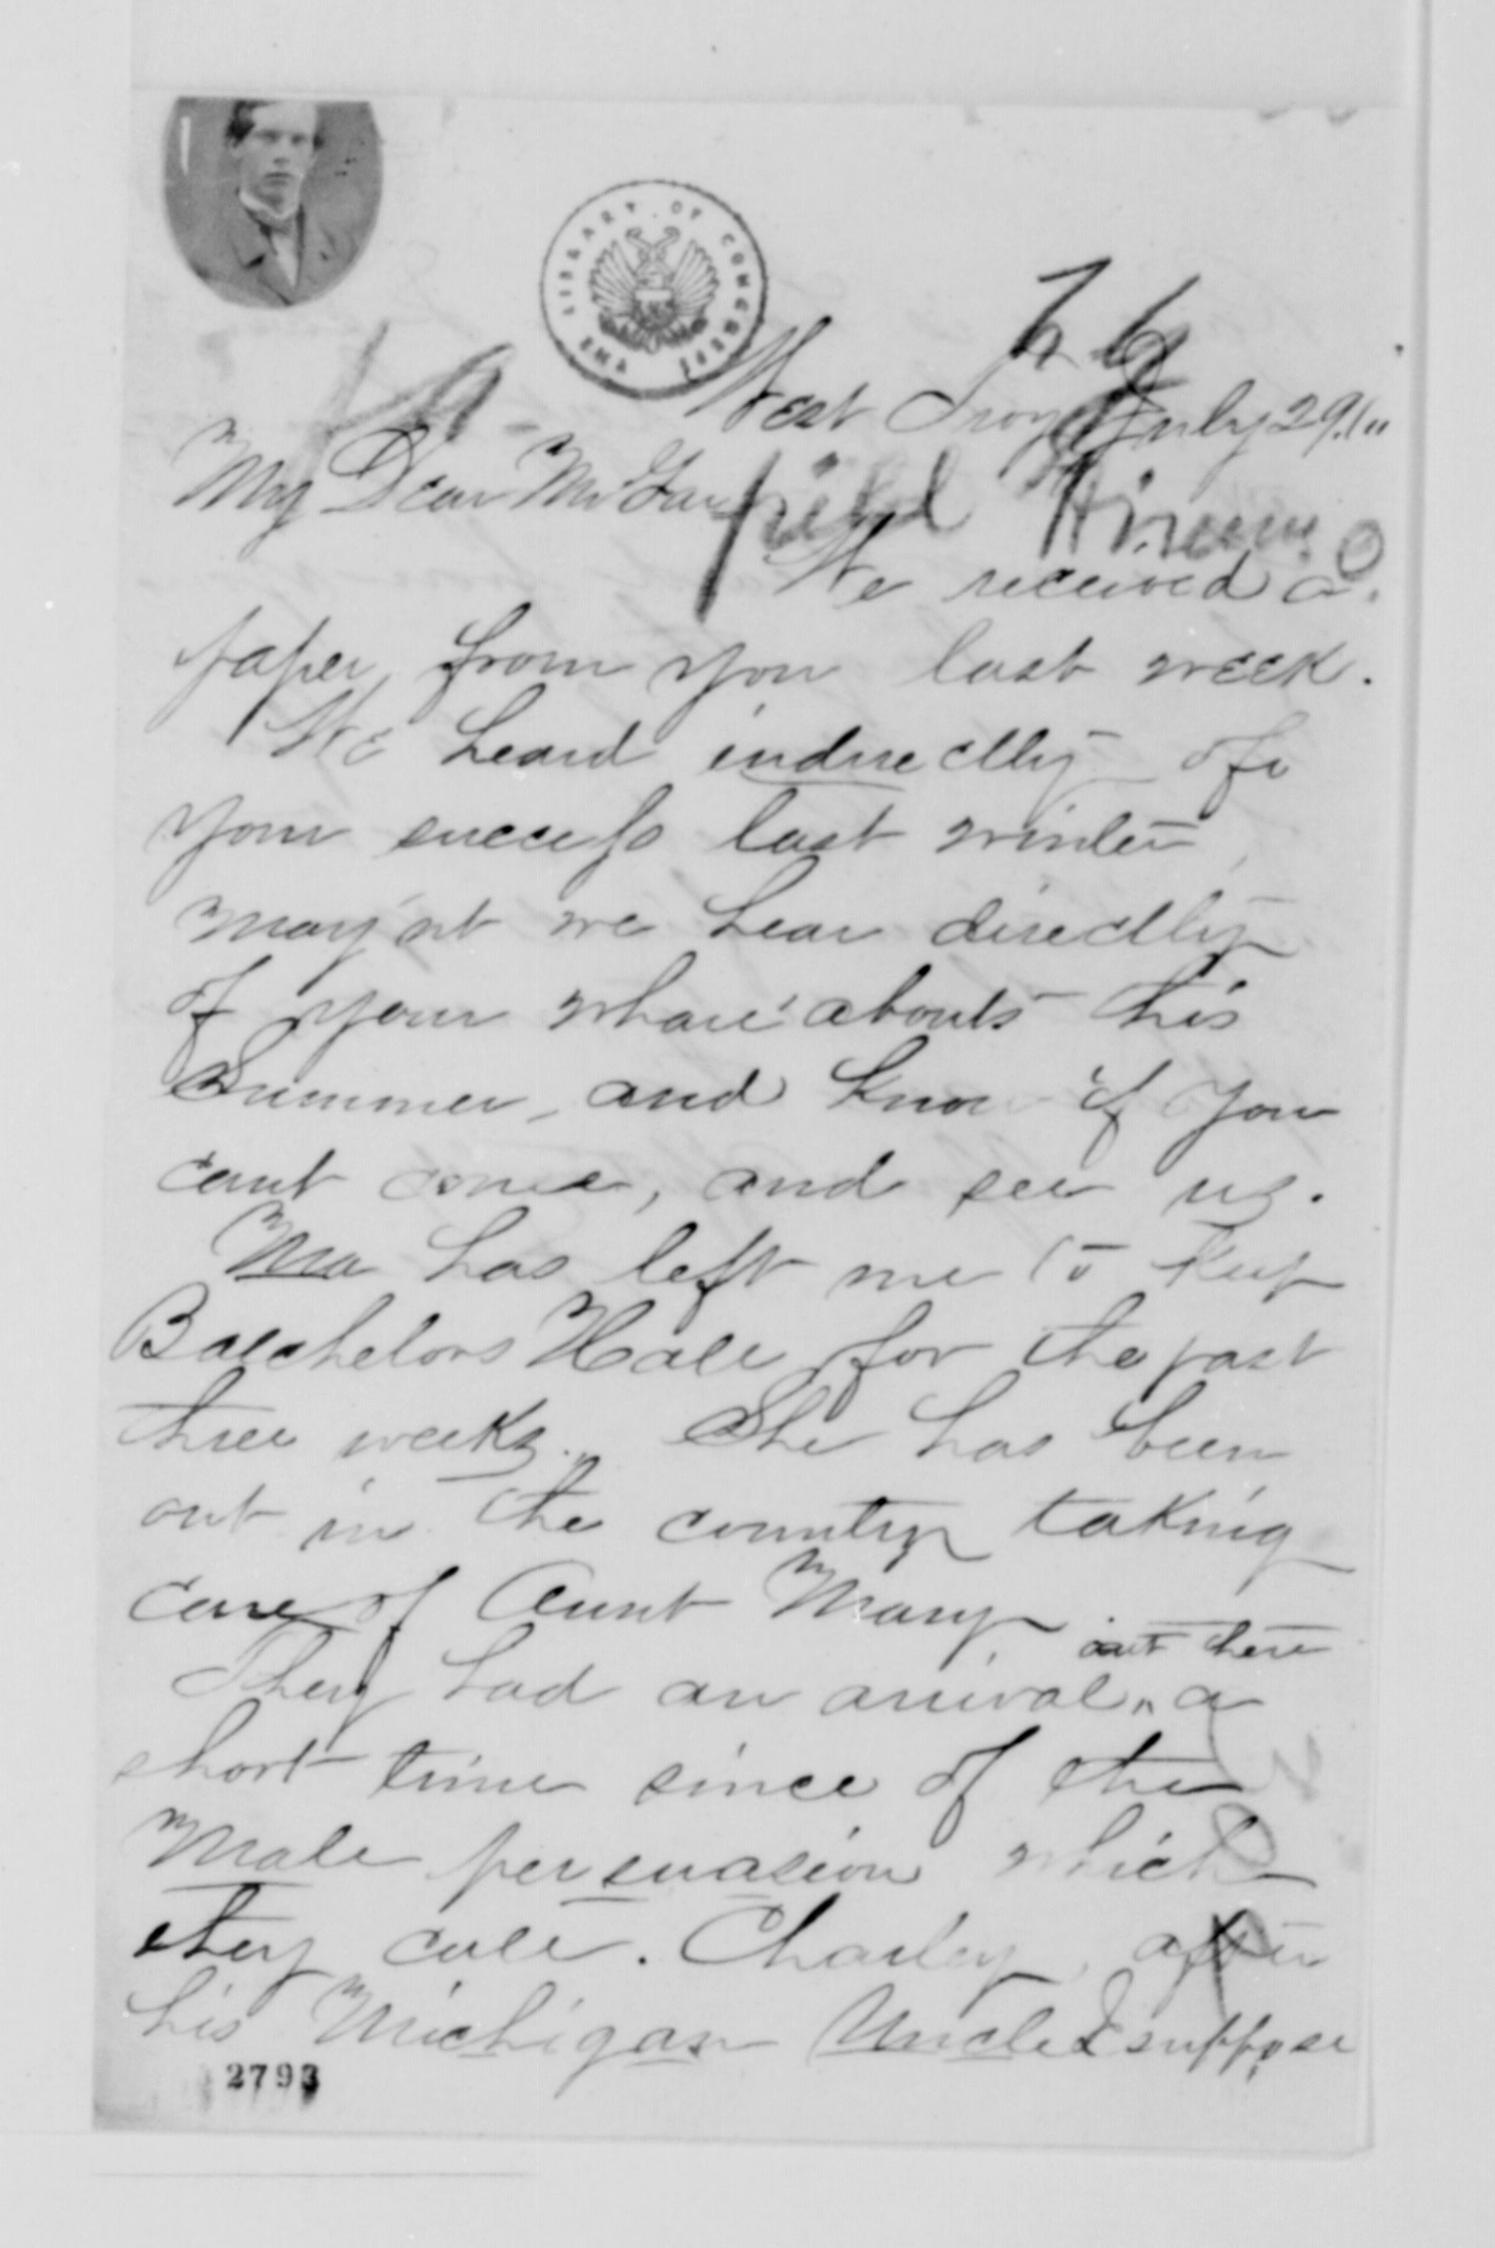 THE LIBRARY OF CONGRESS
76
West Troy July 29.
My Dear Mr Garfield Hiram O
We received a
paper from you last week.
We heard indirectly of
your success last winter,
may'nt we hear directly
of your whare'abouts this
Summer, and know if you
cant come, and see us.
Ma has left me to keep
Baechelors Hall for the past
three weeks. She has been
out in the country taking
care of Aunt Mary.
out there
They had an arrival " a
short time since of the
Male persuasion which
they call. Charley after
his Michigan Uncle I suppose
2793